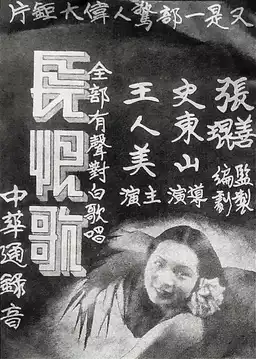 又是一部驚人偉大鉅片
張善琨 監製 編劇
史東山 導演
王人美 主演
全部有聲對白歌唱
長恨歌
中華通錄音